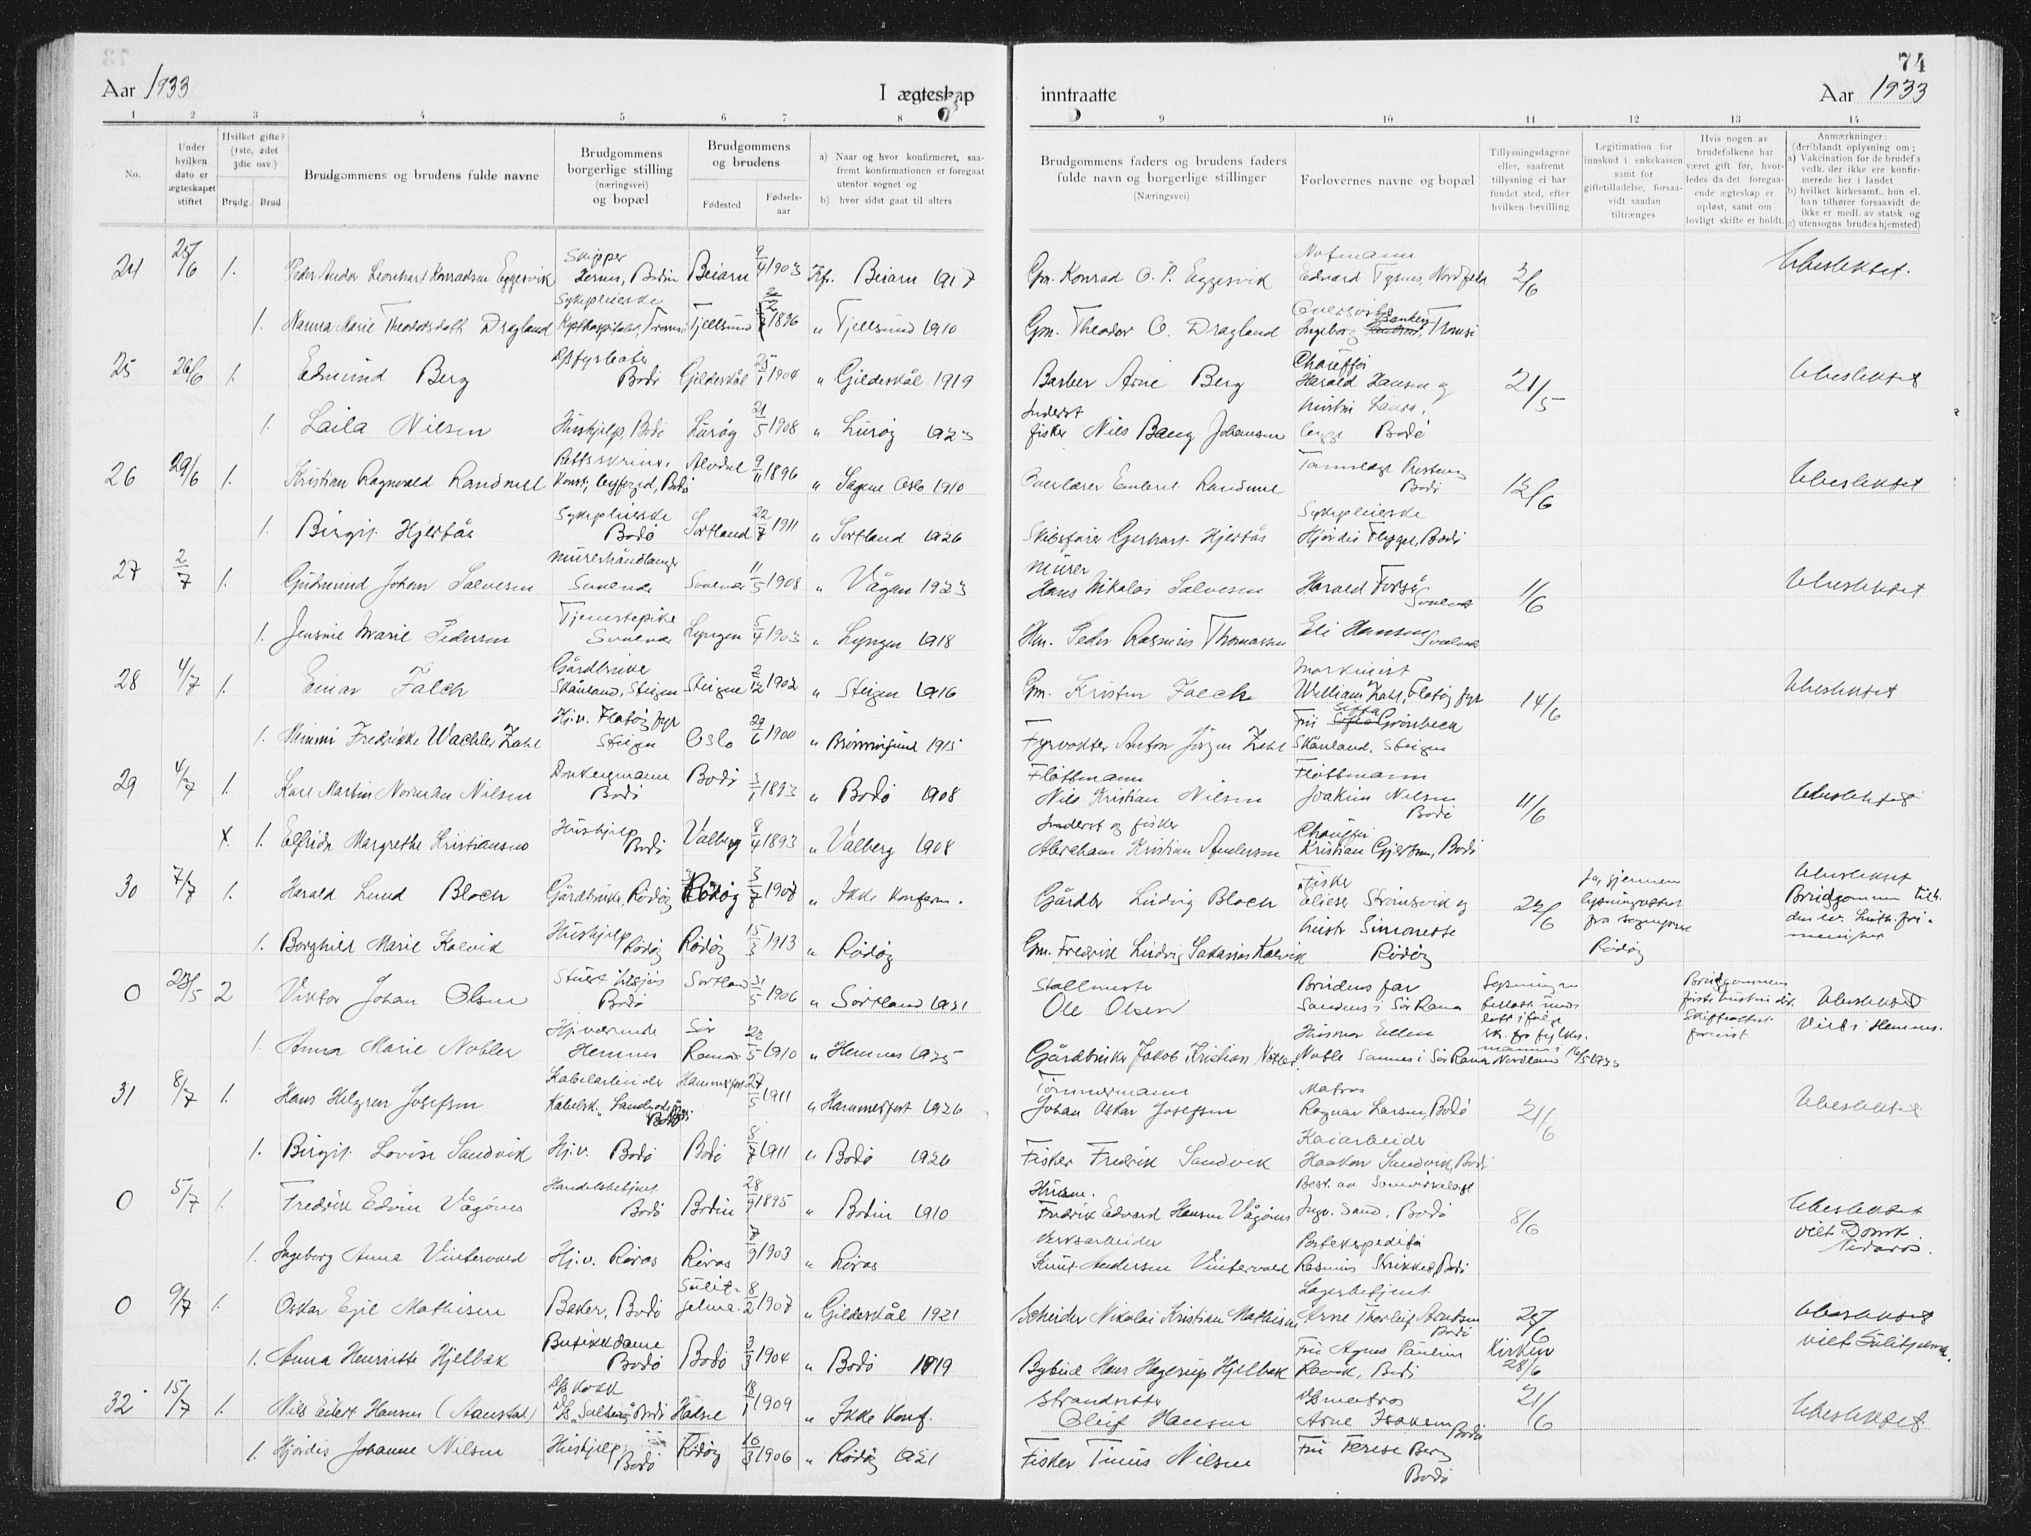 74
Aar 1933
I ægteskap
inntraatte
Aar 1933
1 2 3 4 5 6 7 8
9 10 11 12 13 14
No.
Under hvilken dato er ægteskapet stiftet
Hvilket gifte? (1ste, 2det 3die osv.)
Brudg. Brud
Brudgommens og brudens fulde navne
Brudgommens borgerlige stilling (næringsvei) og bopæl
Brudgommens og brudens
Fødested
Fødselsaar
a) Naar og hvor konfirmeret, saafremt konfirmationen er foregaat utenfor sognet og
b) hvor sidst gaat til alters
Brudgommens faders og brudens faders fulde navn og borgerlige stillinger (Næringsvei)
Forlovernes navne og bopæl
Tillysningsdagene eller, saafremt tillysning ei har fundet sted, efter hvilken bevilling
Legitimation for innskud i enkekassen samt for giftetilladelse, forsaavidt saadan tiltrænges
Hvis nogen av brudefolkene har været gift før, hvorledes da det foregaaende ægteskap er opløst, samt om lovligt skifte er holdt.
Anmærkninger: (deriblandt oplysning om;
a) Vakcination før de brudef.s vedk. der ikke ere konfirmerede her i landet
b) hvilket kirkesamf., hun el. han tilhører forsaavidt de ikke er medl. av statsk. og
c) utensogns brudes hjemsted)
24 25/6 1. Peder Andor Leonhart Konradsen Eggesvik Skipper Bodin Beiarn 9/4 1903 Kf. Beiarn 1917 Gm. Konrad O. P. Eggesvik Notmann Edvard 2/6 Ubeslektet.
1. Nanna Marie Theodorsdatter Dragland Sykepleierske Tromsø Tjellsund 1896 " Tjellsund 1910 Gm. Theodor O. Dragland Ingeborg Tromsø
25 26/6 1. Edmund Berg Bodø Gildeskål 25/1 1904 " Gildeskål 1919 Barber Arne Berg Chauffør Harald Hansen og 21/5 Ubeslektet
1. Laila Nilsen Hushjelp, Bodø Lurøy 21/5 1908 " Lurøy 1923 Inderst fisker Nils Bang Johansen hustru Laura, begge Bodø
26 29/6 1. Kristian Ragnvald Randmel Bodø Alvdal 9/11 1896 " Sagene Oslo 1910 Overlærer Randmel Bodø 12/6 Ubeslektet
1. Birgit Hjertås Sykepleierske Bodø Sortland 22/7 1911 " Sortland 1926 Skibsfører Gerhart Hjertås Sykepleierske Hjørdis Bodø
27 2/7 1. Gudmund Johan Salvesen Murerhåndlanger Svolvær Svolvær 11/5 1908 " Vågan 1923 Murer Hans Nikolai Salvesen Harald Forsø Svolvær 11/6 Ubeslektet
1. Jensine Marie Pedersen Tjenestepike Svolvær Lyngen 5/4 1903 " Lyngen 1918 Peder Rasmus Thomassen Eli Hansen Svolvær
28 4/7 1. Einar Falch Gårdbruker Skånland, Steigen Steigen 2/12 1902 " Steigen 1916 Gm. Kristen Falch Maskinist William Zahl, Flatøy fyr 14/6 Ubeslektet
1. Mimmi Fredrikke Wachler Zahl Hj.v. Flatøy fyr Steigen Oslo 29/6 1900 " Brønnøysund 1915 Fyrvokter Anton Jørgen Zahl Fru Grønbech Skånland, Steigen
29 4/7 1. Karl Martin Norman Nilsen Bodø Bodø 3/1 1893 " Bodø 1908 Fløttmann Nils Kristian Nilsen Fløttmann Joakim Nilsen Bodø 11/6 Ubeslektet
x 1. Elfrida Margrethe Kristiansen Hushjelp Bodø Valberg 8/4 1893 " Valberg 1908 Inderst og fisker Abraham Kristian Andersen Chauffør Kristian Gjertsen, Bodø
30 7/7 1. Harald Lund Bloch Gårdbruker, Rødøy Rødøy 3/7 1907 " Ikke konfirm. Gårdbr. Ludvig Bloch Fisker Elieser Strømsvik og 25/6 Ubeslektet Brudgommen tilh. den ev. luth. frimenighet
1. Borghild Marie Kalvik Hushjelp Rødøy Rødøy 15/3 1913 " Rødøy Gm. Fredrik Ludvig Sakarias Kalvik hustr Simonette Rødøy Rødøy
0 28/5 2 Viktor Johan Olsen Bodø Sortland 31/5 1906 " Sortland 1921 Stallmester Ole Olsen Brudens far Sandnes i Sør Rana Brudgommens første hustru død. Skifteattest forevist Ubeslektet Viet i Hemnes.
1. Anna Marie Nobler Hj.værende Hemnes Sør Rana 22/5 1910 " Hemnes 1925 Gårdbruker Jakob Kristian Husmor Ellen i Sør Rana Nordland 16/5 1933
31 8/7 1. Hans Helgren Josefsen Kabelarbeider Bodø Hammerfest 27/5 1911 " Hammerfest 1926 Tømmermann Johan Oskar Josefsen Matros Ragnar Larsen, Bodø 21/6 Ubeslektet
1. Birgit Lovise Sandvik Hj.v. Bodø Bodø 8/7 1911 " Bodø 1926 Fisker Fredrik Sandvik Kaiarbeider Haakon Sandvik, Bodø
0 5/7 1. Fredrik Edvin Vågønes Handelsbetjent Bodø Bodin 28/9 1895 " Bodin 1910 Fredrik Edvard Hansen Vågønes Best. av Samvirkelaget Ingv. Sand, Bodø 8/6 Ubeslektet viet Domk. Nidaros.
1. Ingeborg Anna Vintervold Hj.v. Røros Røros 7/9 1903 " Røros Verksarbeider Knut Andersen Vintervold Postekspeditør Rasmus Bodø
0 9/7 1. Oskar Egil Mathisen Baker, Bodø Sulitjelma. 8/2 1907 " Gildeskål 1921 Scheider Nikolai Kristian Mathisen Lagerbetjent Arne Thorleif Arntsen Bodø 25/6 Ubeslektet viet Sulitjelma.
1. Anna Henriette Hjelbak Butikkdame Bodø Bodø 3/3 1904 " Bodø 1919 Bybud Hans Hagerup Hjelbak Fru Agnes Pauline Ravik, Bodø Kirken 28/6
32 15/7 1. Nils Eilert Hansen (Aanstad) D/S kokk Bodø Hadsel 18/1 1909 " Ikke Konf. Strandsitter Oluf Hansen Arne Isaksen Bodø 21/6 Ubeslektet
1. Hjørdis Johanne Nilsen Hushjelp Bodø Rødøy 16/3 1906 " Rødøy 1921 Fisker Tinus Nilsen Fru Terese Berg Bodø